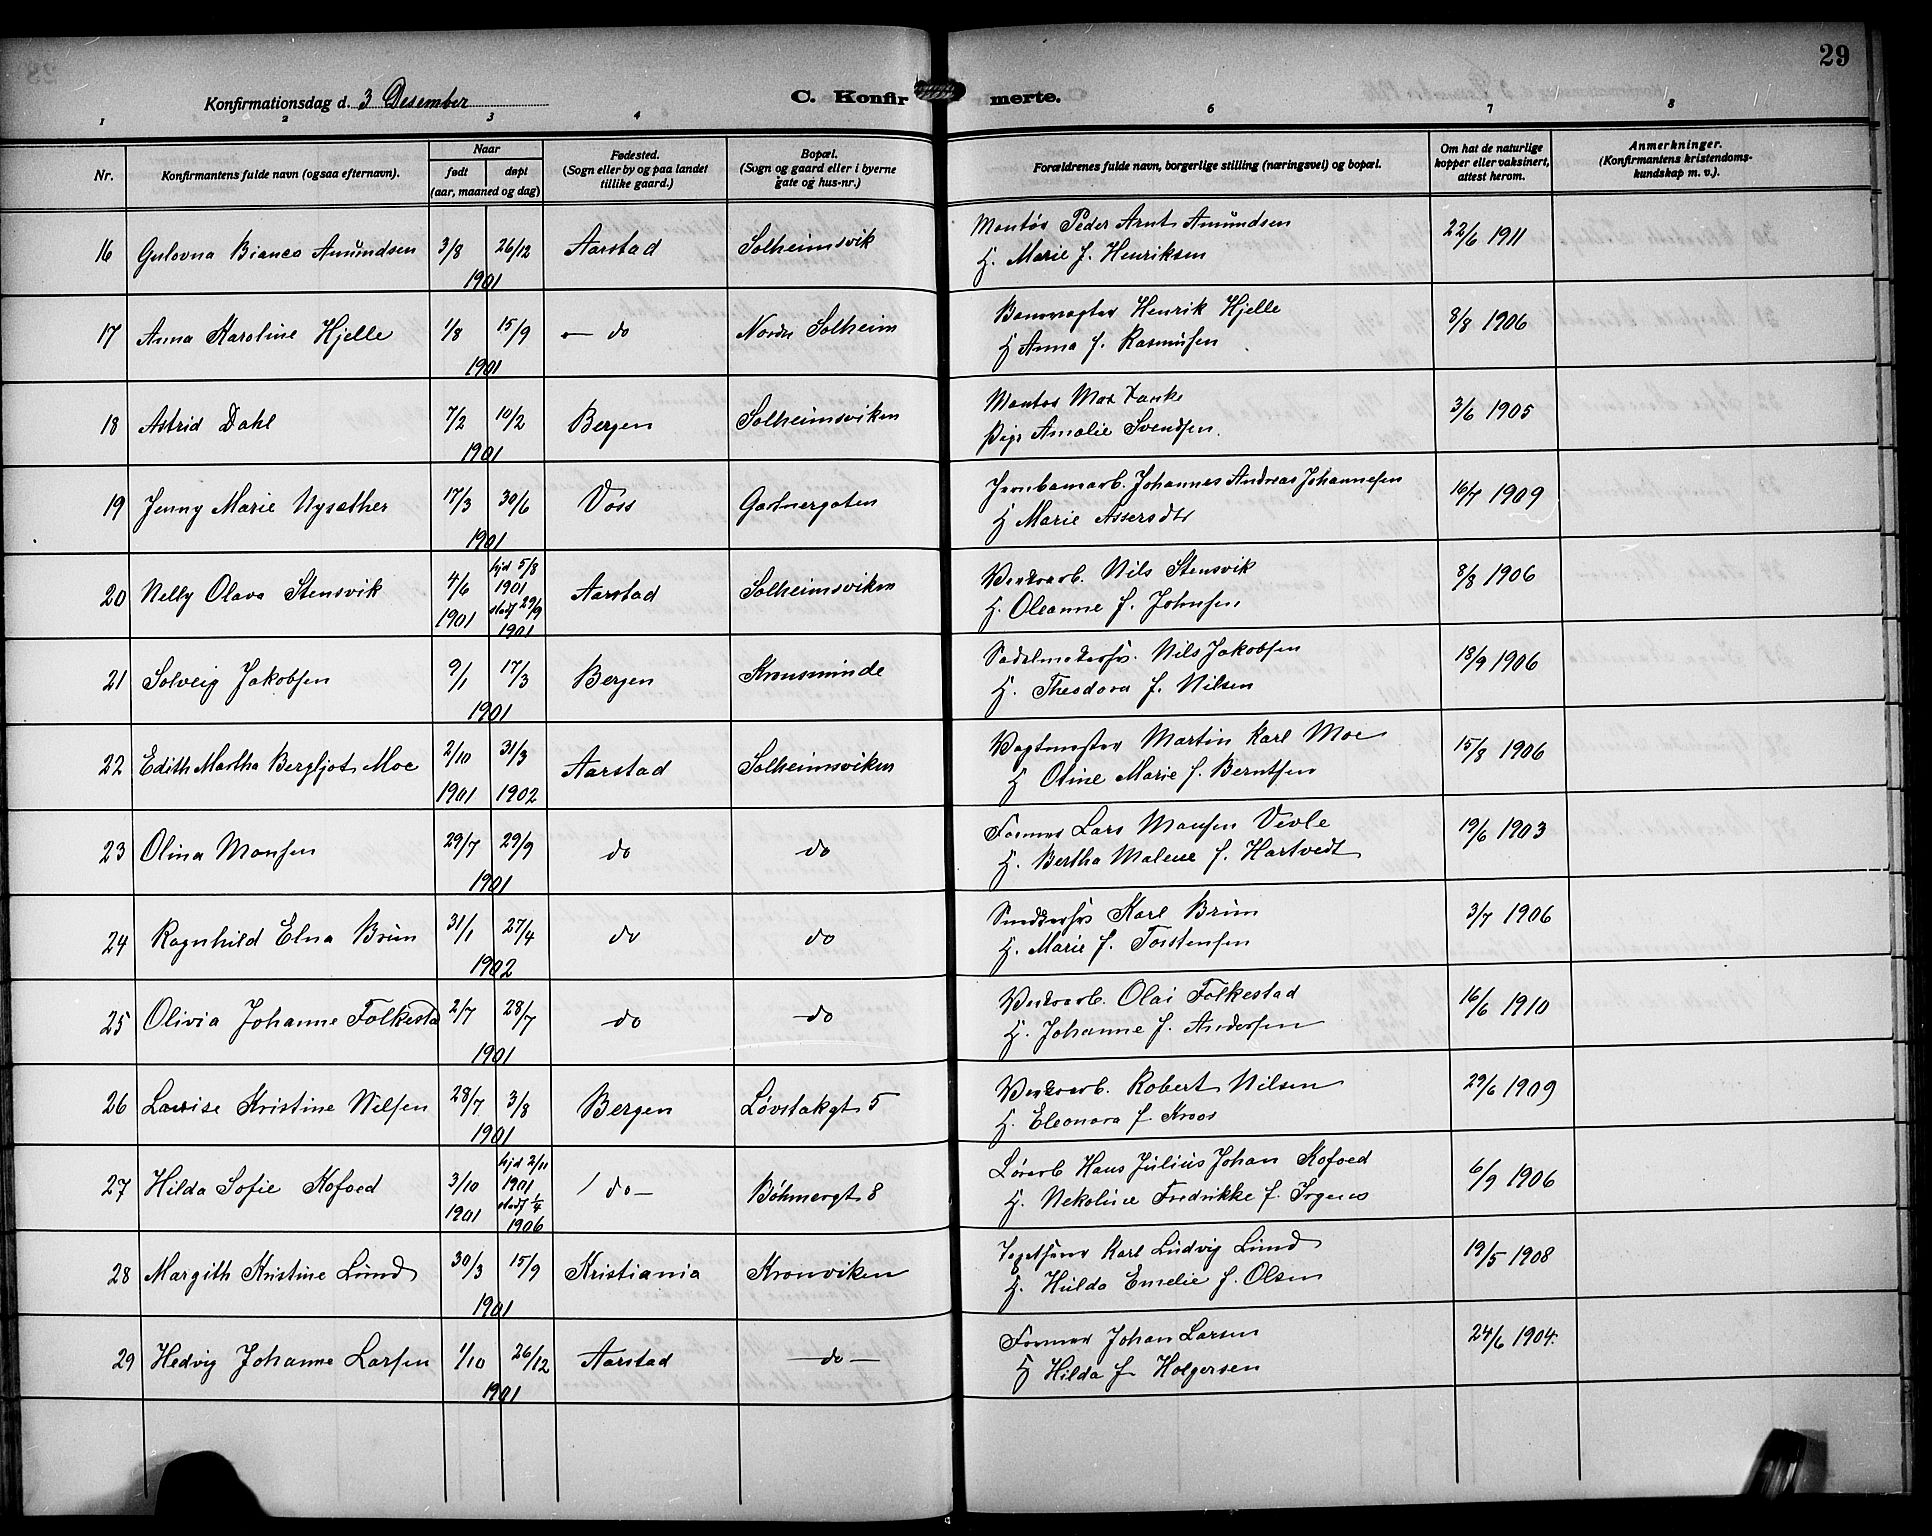 29
Konfirmationsdag d. 3 Desember
C. Konfirmerte.
1 2 3 4 6 7 8
Nr.
Konfirmantens fulde navn (ogsaa efternavn).
Naar
født døpt
(aar, maaned og dag)
Fødested.
(Sogn eller by og paa landet
tillike gaard.)
Bopæl.
(Sogn og gaard eller i byerne
gate og hus-nr.)
Forældrenes fulde navn, borgerlige stilling (næringsvei) og bopæl.
Om hat de naturlige
kopper eller vaksinert,
attest herom.
Anmerkninger.
(Konfirmantens kristendoms-
kundskap m. v.).
16 Gulovna Bianca Amundsen 3/8 26/12 1901 Aarstad Solheimsvik
Montøs Peder Arnt Amundsen 22/6 1911
H. Marie f. Henriksen
17 Anna Karoline Hjelle 1/8 15/9 1901 — do Nordre Solheim
Banevogter Henrik Hjelle 8/8 1906
H Anna f. Rasmusen
18 Astrid Dahl 7/2 10/2 1901 Bergen Solheimsviken
Montøs Max Tanke 3/6 1905
Pige Amalie Svendsen.
19 Jenny Marie Nysæther 17/3 30/6 1901 Voss Gartnergaten
Jernbanearb. Johannes Andreas Johannesen 16/7 1909
H Marie Assersdtr
20 Nelly Olava Stensvik 4/6 1901 hjd 5/8 1901 stadf 29/9 1901 Aarstad Solheimsviken
Verksarb. Nils Stensvik 8/8 1906
H. Oleanne f. Johnsen
21 Solveig Jakobsen 9/1 17/3 1901 Bergen Kronsminde
Sadelmakersv. Nils Jakobsen 18/9 1906
H. Theodora f. Nilsen
22 Edith Martha Bergljot Moe 2/10 1901 31/3 1902 Aarstad Solheimsviken
Vagtmester Martin Karl Moe 15/8 1906
H Oline Marie f. Berntsen
23 Olina Monsen 29/7 29/9 1901 do do
Former Lars Monsen Vevle 19/6 1903
H. Bertha Malene f. Hartvedt
24 Ragnhild Elna Brun 31/1 27/4 1902 do do
Snedkersv Karl Brun 3/7 1906
H. Marie f. Torstensen
25 Olivia Johanne Folkestad 2/7 28/7 1901 do do
Verksarb. Olai Folkestad 16/6 1910
H. Johanne f. Andersen
26 Lovise Kristine Nilsen 28/7 3/8 1901 Bergen Løvstakgt 5
Verksarb. Robert Nilsen 29/6 1909
H. Eleonora f Kroos
27 Hilda Sofie Kofoed 3/10 1901 hjd 2/11 1901 stadf 1/4 1906 / do — Bøhmergt 8
Løsarb Hans Julius Johan Kofoed 6/9 1906
H. Nekoline Fredrikke f. Irgens
28 Margith Kristine Lund 30/3 15/9 1901 Kristiania Kronviken
Karl Ludvig Lund 19/5 1908
H. Hulda Emelie f. Olsen
29 Hedvig Johanne Larsen 1/10 26/12 1901 Aarstad — do —
Former Johan Larsen 24/6 1904.
H Hilda f. Holgersen